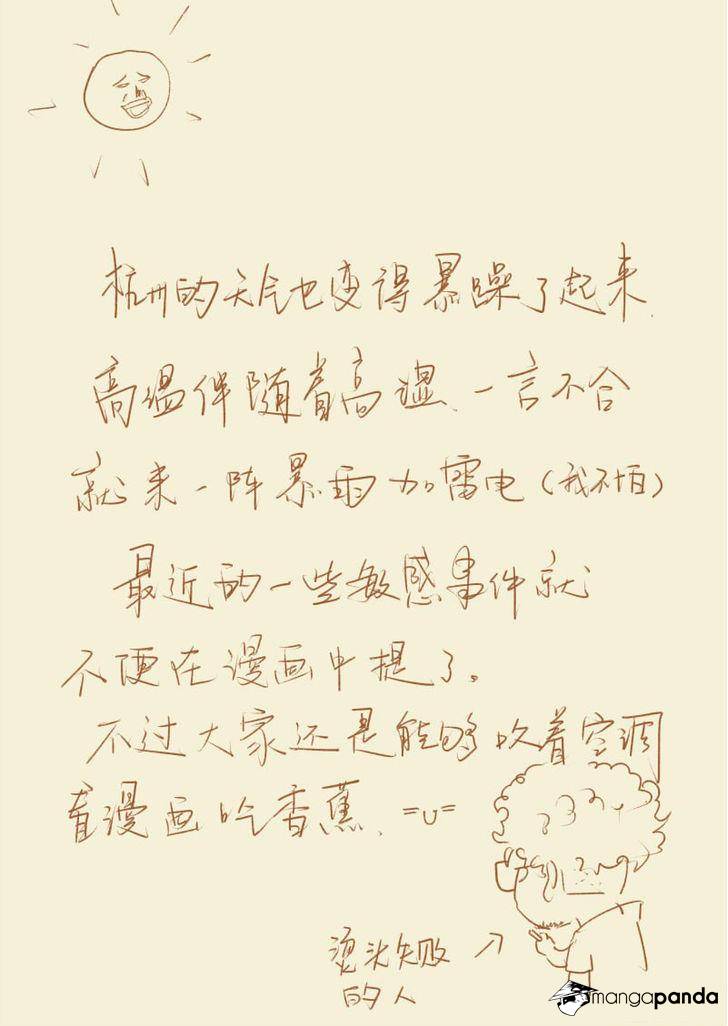 杭州的天气也变得暴躁了起来.
高温伴随着高湿、一言不合
就来一阵暴雨加雷电（我不怕）
最近的一些敏感事件就
不便在漫画中提了。
不过大家还是能够吹着空调
看漫画吃香蕉、=u=
烫头失败
的人
mangapanda